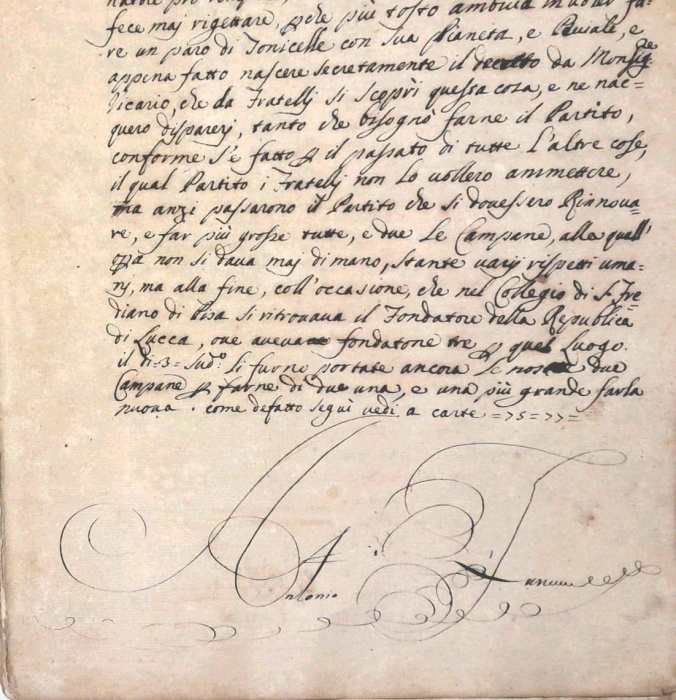 fece maj rigettare, pche più tosto ambiua in uoler fa=
re un paro di Tonicelle con sua Pianeta, e Piuiale, e
appena fatto nascere secretamente il da Monsigre
Vicario, che da Fratellj si scoprì questa cosa, e ne nac=
quero disparerj, tanto che bisognò farne il Partito,
conforme s'è fatto p il passato di tutte l'altre cose,
il qual Partito i Fratellj non lo uollero ammettere,
ma anzi passarono il Partito che si douessero Rinnoua=
re, e far più grosse tutte, e due le Campane, alla quall'
opra non si daua maj di mano, stante varij rispetti uma=
nj, ma alla fine, coll'occasione, che nel Collegio di S. Fre=
diano di Pisa si ritrouaua il Fondatore della Republica
di Lucca, oue aueua fondatone tre p quel Luogo.
il dì=3= sudo. li furno portate ancora le nostre due
Campane p farne di due una, e una più grande farla
nuoua. come defatto seguì vedi a carte =75=77=
Antonio